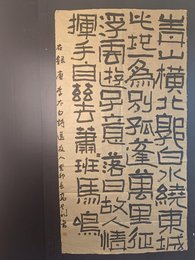 青山橫北郭白水繞東城
此地一為別孤蓬萬里征
浮雲遊子意落日故人情
揮手自茲去蕭班馬鳴
右錄唐李太白詩送友人